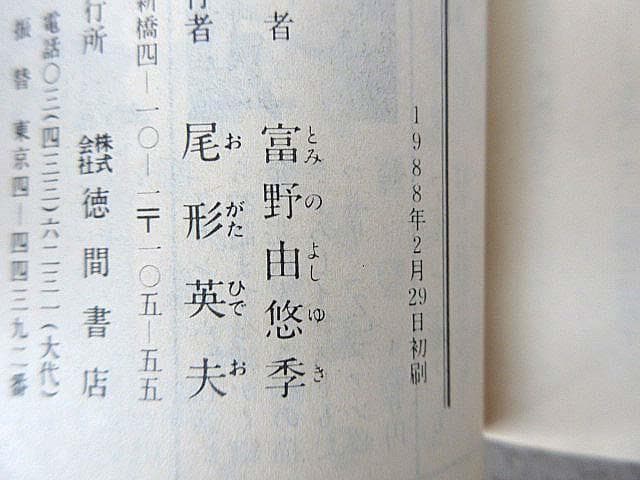 1988年2月29日初刷
者 富野由悠季
とみ の よし ゆ き
行者 尾形英夫
お がた ひで お
新橋四―一〇―一〒一〇五―五五
行所 株式会社 徳間書店
電話〇三(四三三)六二三一(大代)
振替 東京四―四四三九二番